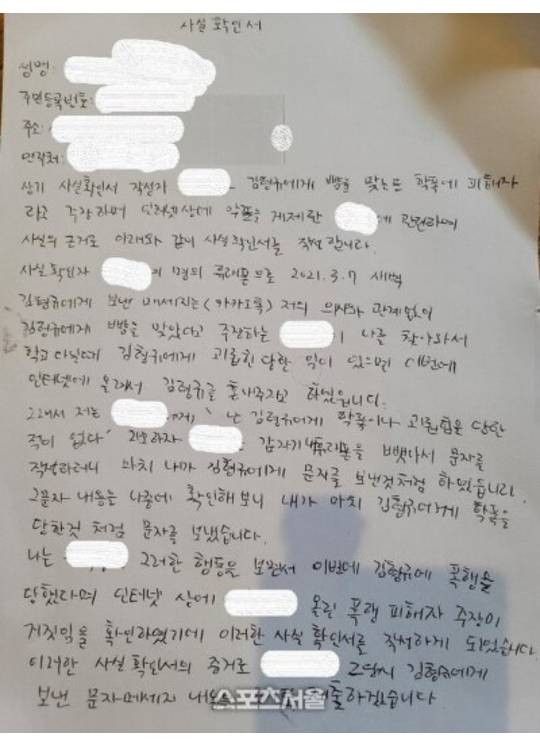 사실 확인서
성명:
주민등록번호:
주소:
연락처:
상기 사실확인서 작성자 김형규에게 뺨을 맞는 등 학폭에 피해자
라고 주장하며 인터넷상에 악플을 게제한 에 관련하여
사실의 근거로 아래와 같이 사실확인서를 작성합니다.
사실확인자 의 명의 휴대폰으로 2021.3.7 새벽
김형규에게 보낸 메세지는 (카카오톡) 저의 의사와 관계없이
김형규에게 뺨을 맞았다고 주장하는 나를 찾아와서
학교 다닐때 김형규에게 괴롭힘 당한 일이 있으면 이번에
인터넷에 올려서 김형규를 혼내주자고 하였습니다.
그래서 저는 에게 "난 김형규에게 학폭이나 괴롭힘을 당한
적이 없다" 갑자기 휴대폰을 뺏아서 문자를
작성하더니 마치 내가 김형규에게 문자를 보낸것처럼 하였습니다.
그문자 내용을 나중에 확인해보니 내가 마치 김형규에게 학폭을
당한것 처럼 문자를 보냈습니다.
나는 그러한 행동을 보면서 이번에 김형규에 폭행을
당했다며 인터넷 상에 올린 폭행 피해자 주장이
거짓임을 확인하였기에 이러한 사실 확인서를 작성하게 되었습니다.
이러한 사실 확인서의 증거로 그당시 김형규에게
보낸 문자메세지 제출하겠습니다
스포츠서울